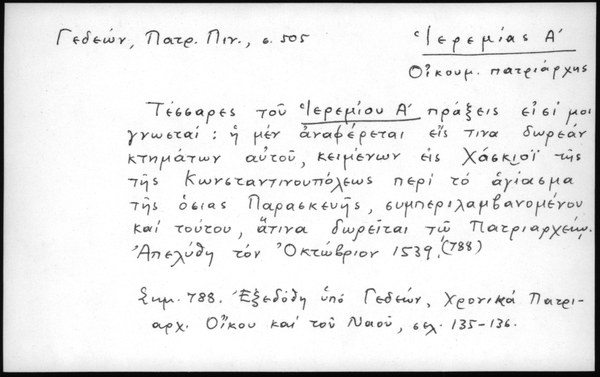 Γεδεών, Πατρ. Πιν., σ. 505
Ἱερεμίας Α΄
Οἰκουμ. πατριάρχης
Τέσσαρες τοῦ Ἱερεμίου Α΄ πράξεις εἰσί μοι
γνωσταί : ἡ μέν ἀναφέρεται εἴς τινα δωρεάν
κτημάτων αὐτοῦ, κειμένων εἰς Χάσκιοϊ τῆς
τῆς Κωνσταντινουπόλεως περί τό ἁγίασμα
τῆς ὁσίας Παρασκευῆς, συμπεριλαμβανομένου
καί τούτου, ἅτινα δωρεῖται τῷ Πατριαρχείῳ.
Ἀπελύθη τόν Ὀκτώβριον 1539.(788)
Σημ. 788. Ἐξεδόθη ὑπό Γεδεών, Χρονικά Πατρι-
αρχ. Οἴκου καί τοῦ Ναοῦ, σελ. 135-136.